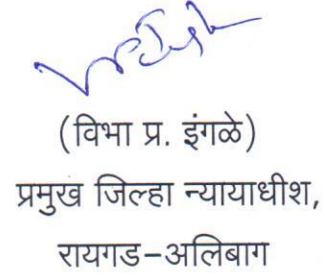 (विभा प्र. इंगळे)
प्रमुख जिल्हा न्यायाधीश,
रायगड-अलिबाग